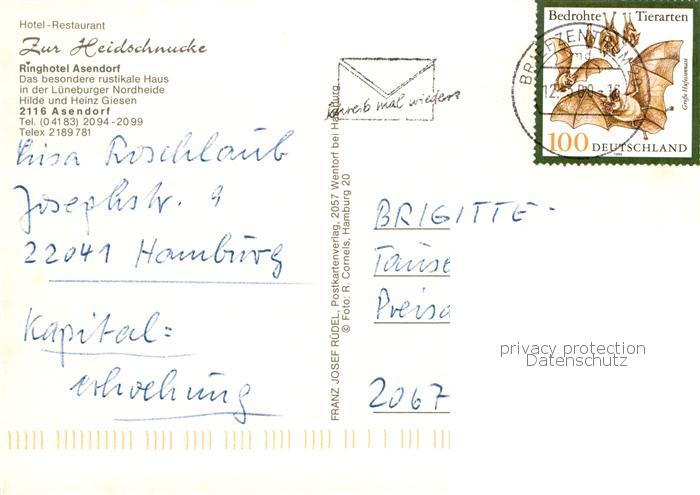 Hotel-Restaurant
Zur Heidschnucke
Ringhotel Asendorf
Das besondere rustikale Haus
in der Lüneburger Nordheide
Hilde und Heinz Giesen
2116 Asendorf
Tel. (04183) 2094-2099
Telex 2189781
Roschlaub
Josephstr. 9
22041 Hamburg
Kapital=
erhoehung
FRANZ JOSEF RÜDEL, Postkartenverlag, 2057 Wentorf bei Hamburg
© Foto: R. Cornels, Hamburg 20
Schreib mal wieder!
BRIEFZENTRUM
Bedrohte Tierarten
Große Hufeisennase
100 DEUTSCHLAND
BRIGITTE-
Tause
Preisa
2067
privacy protection
Datenschutz